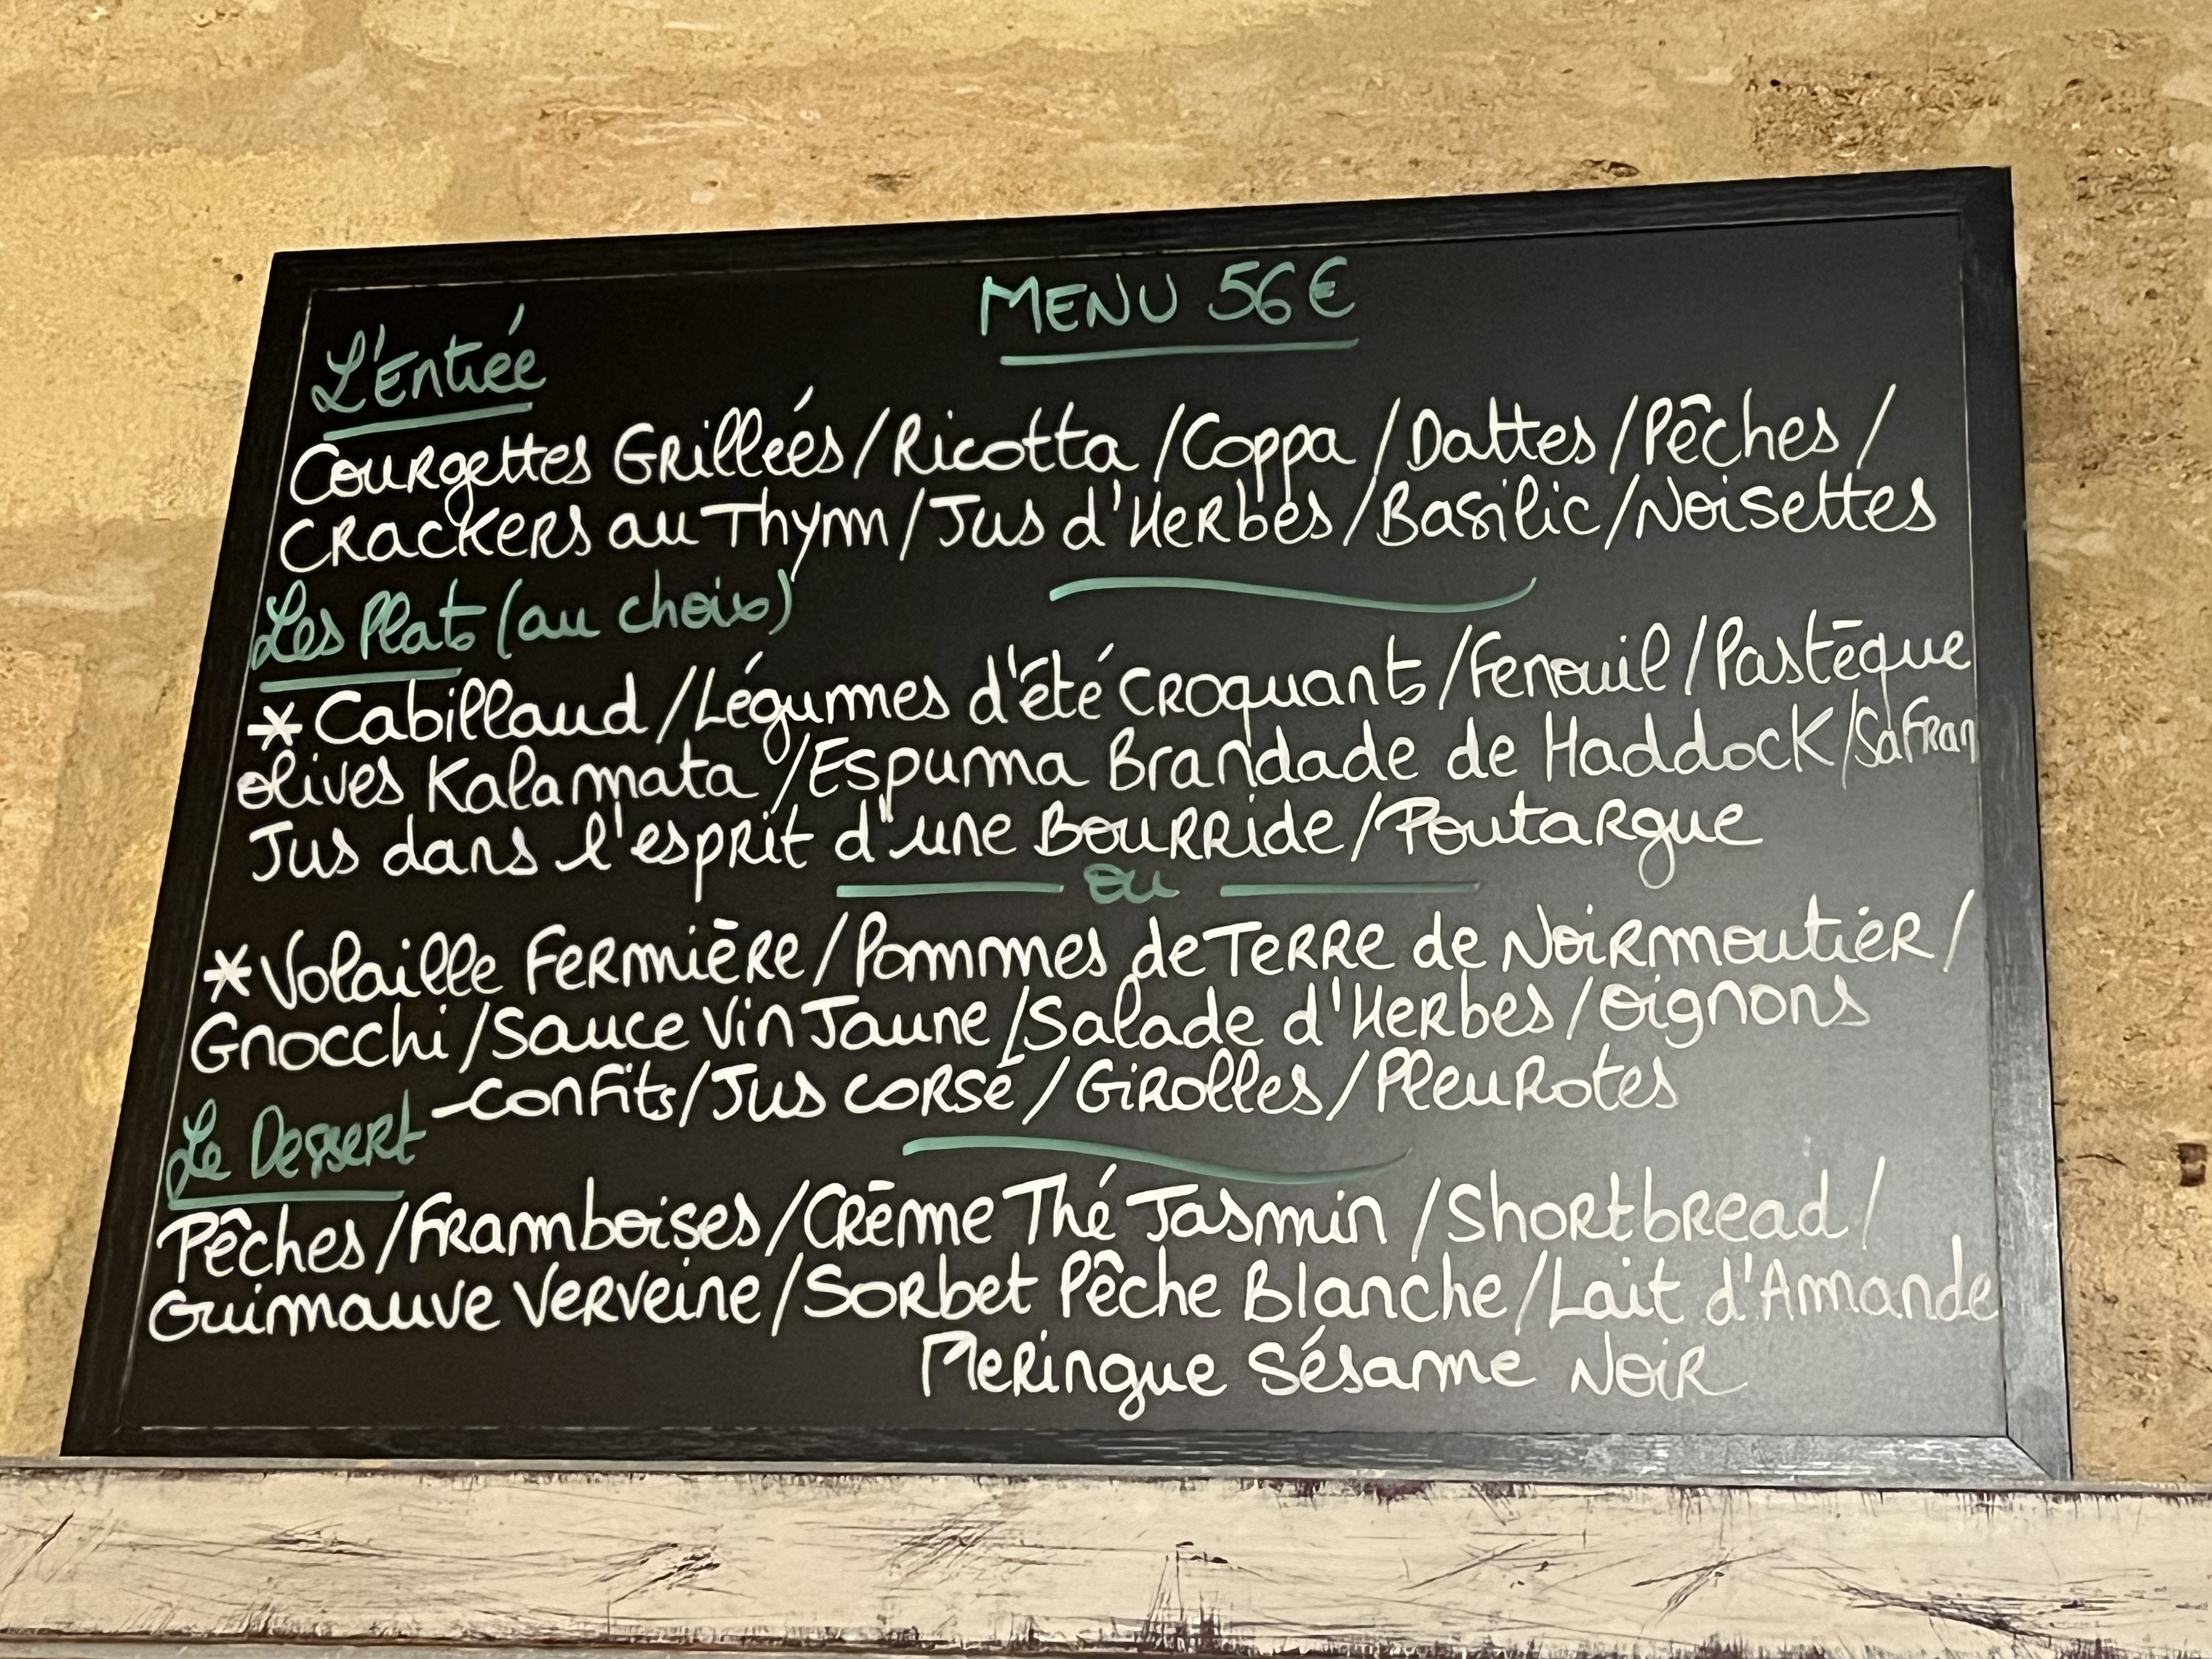 MENU 56€
L'Entrée
Courgettes Grillées/Ricotta/Coppa/Dattes/Pêches/
Crackers au Thym/Jus d'Herbes/Basilic/Noisettes
Les Plats (au choix)
* Cabillaud/Légumes d'été Croquants/Fenouil/Pastèque
Olives Kalamata/Espuma Brandade de Haddock/Safran
Jus dans l'esprit d'une Bourride/Poutargue
ou
* Volaille Fermière/Pommes de Terre de Noirmoutier/
Gnocchi/Sauce Vin Jaune/Salade d'Herbes/Oignons
Confits/Jus corsé/Girolles/Pleurotes
Le Dessert
Pêches/Framboises/Crème Thé Jasmin/Shortbread/
Guimauve Verveine/Sorbet Pêche Blanche/Lait d'Amande
Meringue Sésame Noir